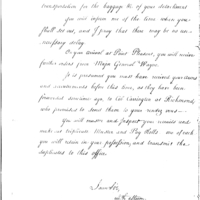 transportation for the baggage &c of your detachment
You will inform me of the time when you
shall set out, and I pray that there may be no un-
necessary delay.
On your arrival at Point Pleasant, you will receive
further orders from Major General Wayne
It is presumed you must have received your arms
and accoutrements before this time, as they have been
forwarded sometime ago to Col Carrington at Richmond,
who promised to send them to your rendezvous—
You will muster and inspect your recruits and
make out triplicate Muster and Pay Rolls one of each
you will retain in your possession, and transmit the
duplicates to this office.
I am Sir,